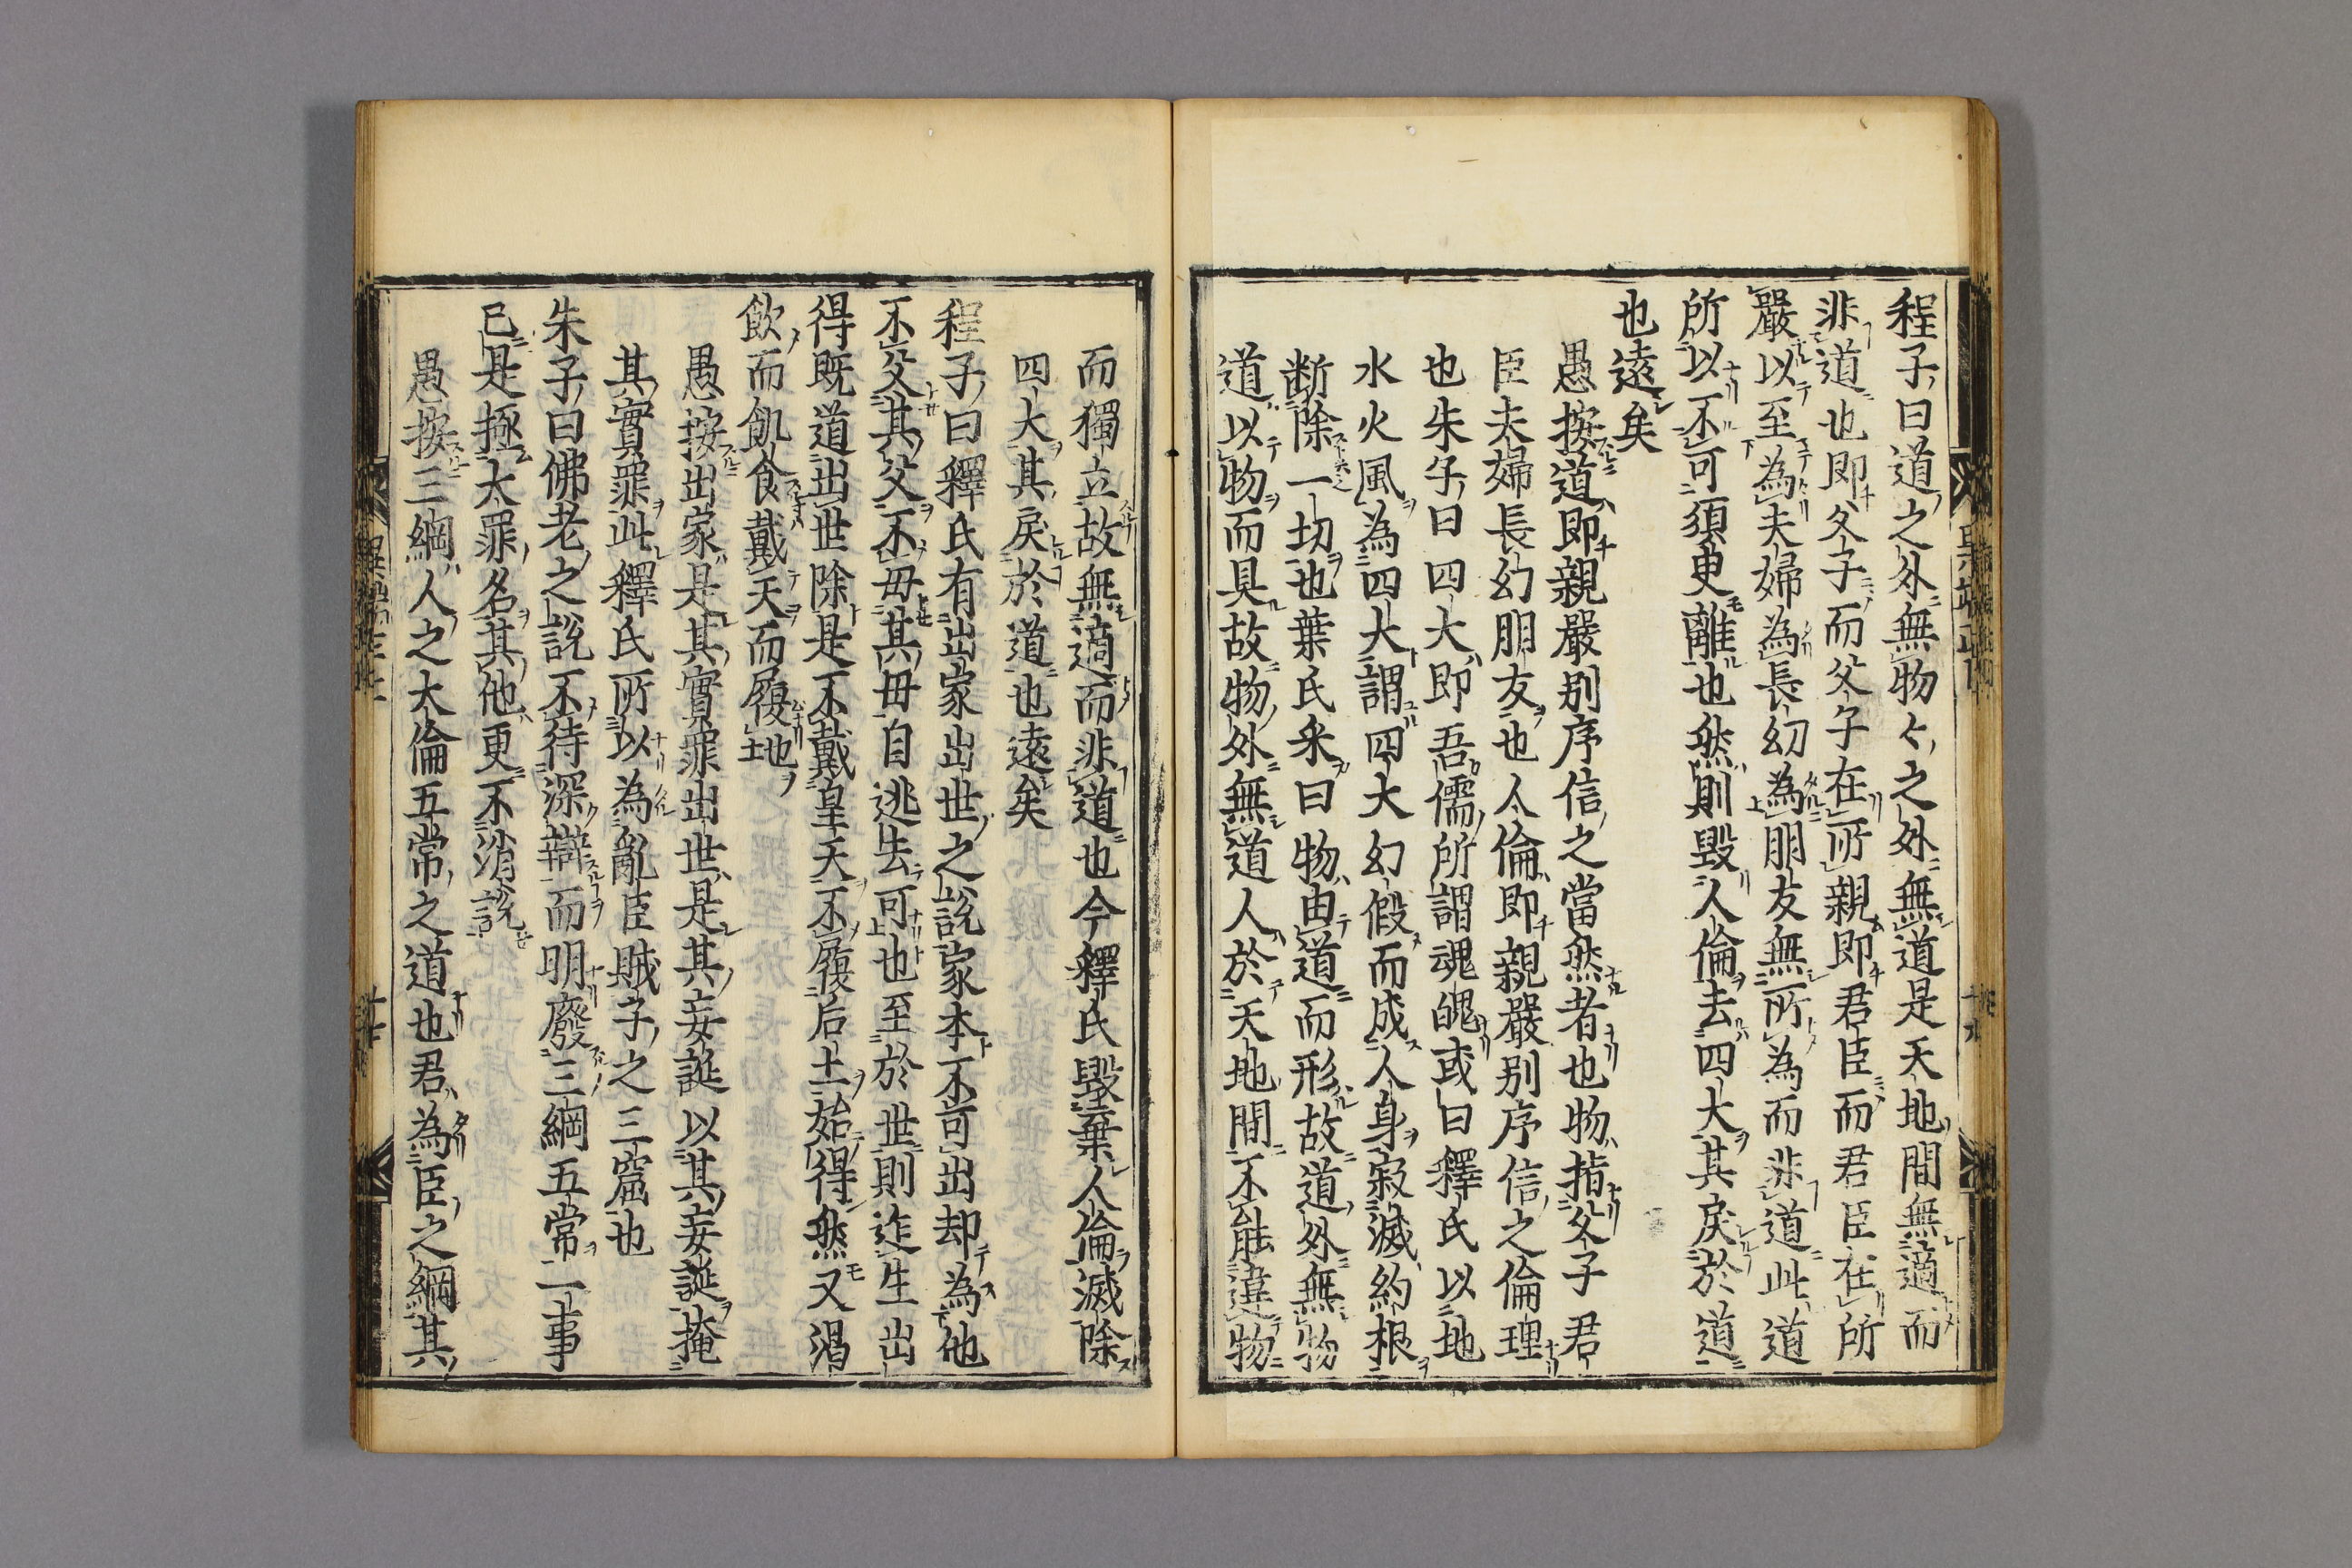 程子曰道之外無物々之外無道是天地間無適而
非道也即父子而父子在所親即君臣而君臣在所
嚴以至為夫婦為長幼為朋友無所為而非道此道
所以不可須臾離也然則毀人倫去四大其戻於道
也遠矣
愚按道即親嚴別序信之當然者也物指父子君
臣夫婦長幼朋友也人倫即親嚴別序信之倫理
也朱子曰四大即吾儒所謂魂魄或曰釋氏以地
水火風為四大謂四大幻假而成人身寂滅約根
断除一切也葉氏采曰物由道而形故道外無物
道以物而具故物外無道人於天地間不能違物
而獨立故無適而非道也今釋氏毀棄人倫滅除
四大其戻於道也遠矣
程子曰釋氏有出家出世之說家本不可出却為他
不父其父不母其母自逃去可也至於世則迯生出
得既道出世除是不戴皇天不履后土始得然又渴
飲而飢食戴天而履地
愚按出家是其實罪出世是其妄誕以其妄誕掩
其實罪此釋氏所以為亂臣賊子之三窟也
朱子曰佛老之說不待深辯而明廢三綱五常一事
已是極大罪名其他更不消說
愚按三綱人之大倫五常之道也君為臣之綱其